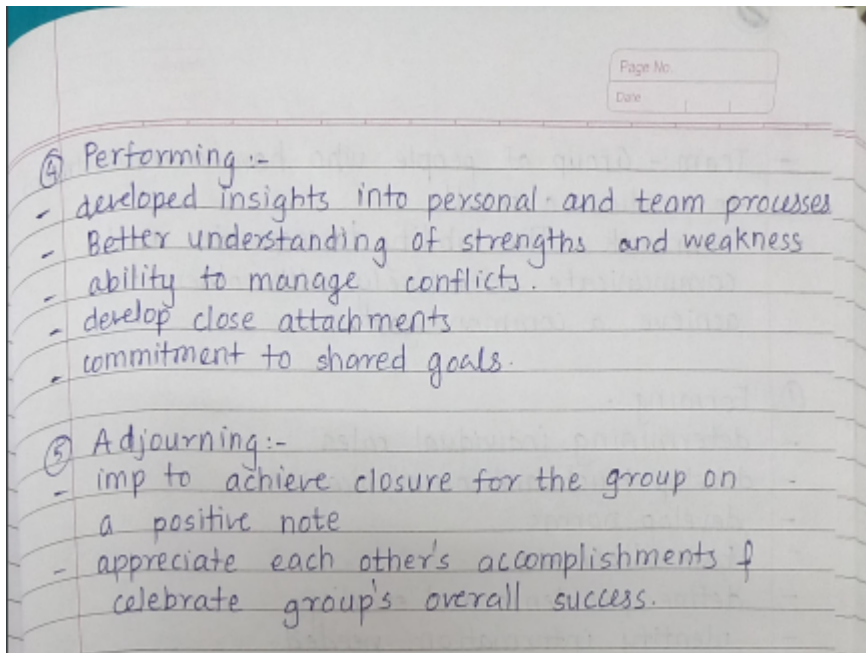 Page No.
Date
④ Performing :-
- developed insights into personal and team processes
- Better understanding of strengths and weakness
- ability to manage conflicts.
- develop close attachments
- commitment to shared goals.
⑤ Adjourning :-
- imp to achieve closure for the group on
a positive note
- appreciate each other's accomplishments &
celebrate group's overall success.